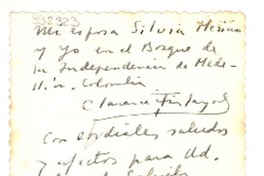 992323
Mi esposa Silvia
y yo en el Bosque
de la Independencia de Mede-
llín. Colombia
Clarence Finlayson
Con cordiales saludos
y afectos para Ud.